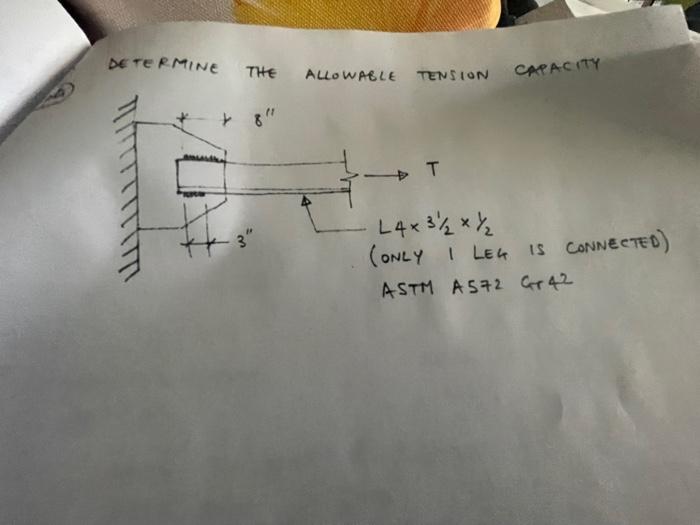 DETERMINE THE ALLOWABLE TENSION CAPACITY
8"
T
L4 x 3 1/2 x 1/2
3"
(ONLY 1 LEG IS CONNECTED)
ASTM A572 Gr 42